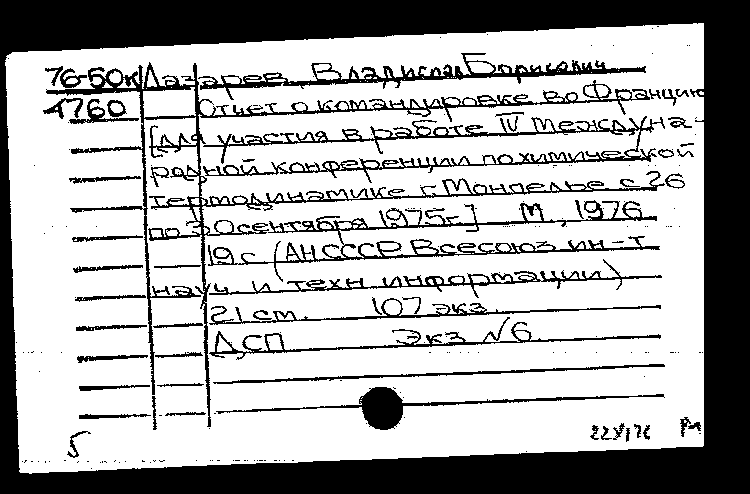 76-50к Лазарев, Владислав Борисович
4760 Отчет о командировке во Францию
[для участия в работе IV Междуна-
родной конференции по химической
термодинамике г. Монпелье с 26
по 30 сентября 1975г.] М., 1976
19 с (АН СССР Всесоюз ин-т
науч. и техн информации)
21 см. 107 экз.
ДСП Экз №6.
5